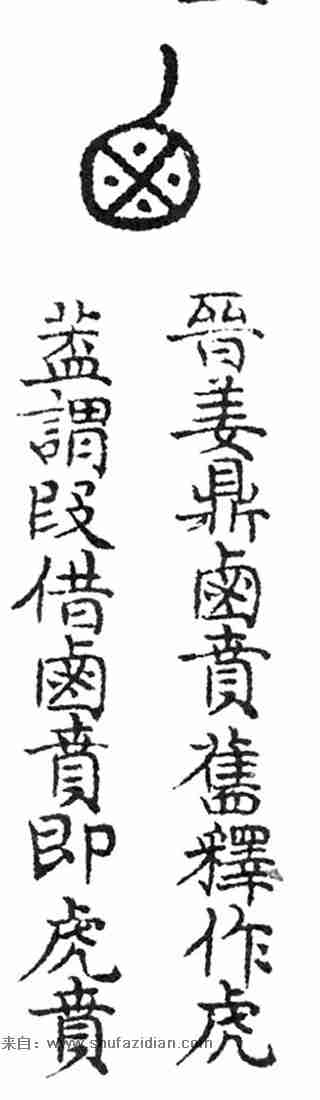 晉姜鼎鹵賁舊釋作虎
葢謂叚借鹵賁即虎賁
来自：www.shufazidian.com